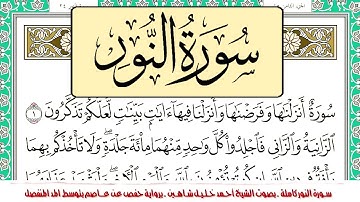 سُورَةُ النُّورِ
سُورَةٌ أَنزَلْنَٰهَا وَفَرَضْنَٰهَا وَأَنزَلْنَا فِيهَآ ءَايَٰتٍۭ بَيِّنَٰتٍ لَّعَلَّكُمْ تَذَكَّرُونَ ١
ٱلزَّانِيَةُ وَٱلزَّانِى فَٱجْلِدُوا۟ كُلَّ وَٰحِدٍ مِّنْهُمَا مِا۟ئَةَ جَلْدَةٍ وَلَا تَأْخُذْكُم بِهِمَا
سورة النور كاملة .بصوت الشيخ احمد خليل شاهين .برواية حفص عن عاصم بتوسط المد المنفصل